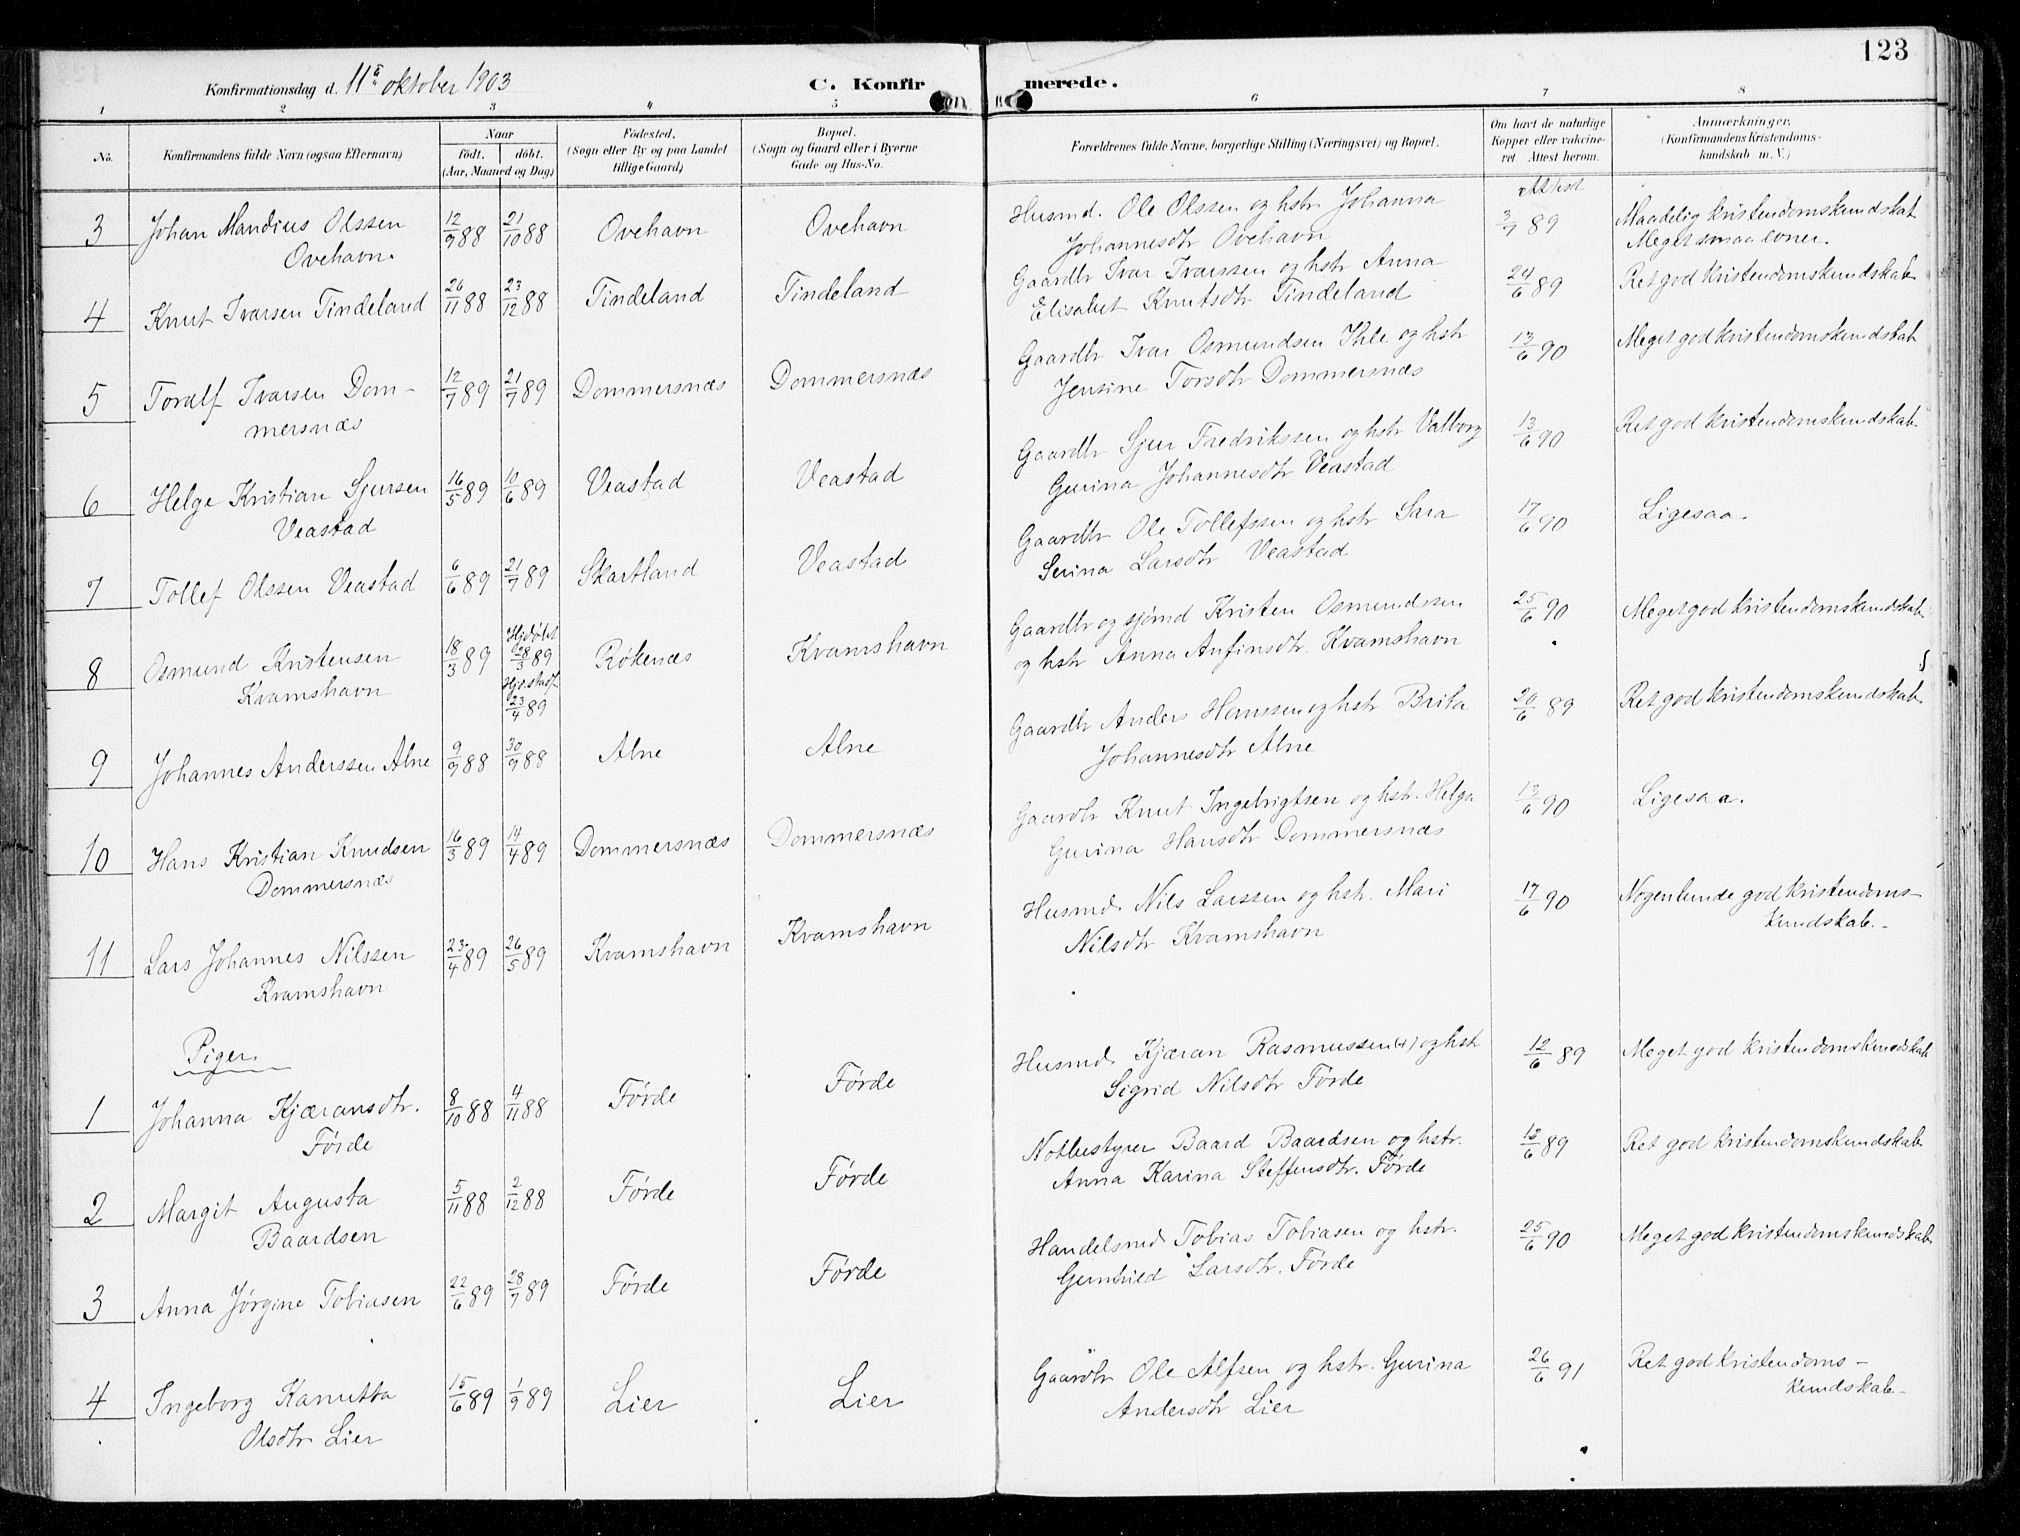 123
Konfirmationsdag d. 11te oktober 1903
C. Konfirmerede.
1 2 3 4 5 6 7 8
No.
Konfirmandens fulde Navn (ogsaa Efternavn)
Naar
født. døbt.
(Aar, Maaned og Dag)
Fødested.
(Sogn eller By og paa Landet
tillige Gaard)
Bopæl.
(Sogn og Gaard eller i Byerne
Gade og Hus-No.
Forældrenes fulde Navne, borgerlige Stilling (Næringsvei) og Bopæl.
Om havt de naturlige
Kopper eller vakcine-
ret. Attest herom.
Anmærkninger.
(Konfirmandens Kristendoms-
kundskab m. V.)
Attest
3 Johan Mandius Olssen 12/9 88 21/10 88 Ovehavn Ovehavn Husmd. Ole Olssen og hstr Johanna 3/7 89 Maadelig kristendomskundskab
Ovehavn. Johannesdtr Ovehavn Meget smaa evner.
4 Knut Ivarsen Tindeland 26/11 88 23/12 88 Tindeland Tindeland Gaardbr Ivar Ivarssen og hstr Anna 24/6 89 Ret god kristendomskundskab
Elisabet Knutsdtr Tindeland
5 Toralf Ivarsen Dom- 12/7 89 21/7 89 Dommersnæs Dommersnæs Gaardbr Ivar Osmundsen Ihle og hstr 13/6 90 Meget god kristendomskundskab
mersnæs Jensine Torsdtr Dommersnæs
6 Helge Kristian Sjursen 16/5 89 10/6 89 Veastad Veastad Gaardbr Sjur Fredrikssen og hstr Valborg 13/6 90 Ret god kristendomskundskab
Veastad Gurina Johannesdtr Veastad
7 Tollef Olssen Veastad 6/6 89 21/7 89 Skartland Veastad Gaardbr Ole Tollefssen og hstr Sara 17/6 90 Ligesaa.
Serina Larsdtr Veastad
8 Osmund Kristensen 18/3 89 Hjdøbt 28/3 89 Røkenæs Kvamshavn Gaardbr og sjømd Kristen Osmundsen 25/6 90 Meget god kristendomskundskab
Kvamshavn Hjd. stadf. 23/4 89 og hstr Anna Anfinsdtr. Kvamshavn
9 Johannes Anderssen Alne 9/9 88 30/9 88 Alne Alne Gaardbr Anders Hanssen og hstr Brita 20/6 89 Ret god kristendomskundskab
Johannesdtr Alne
10 Hans Kristian Knudsen 16/3 89 14/4 89 Dommersnæs Dommersnæs Gaardbr Knut Ingebrigtsen og hstr. Helga 13/6 90 Ligesaa.
Dommersnæs Gurina Hansdtr Dommersnæs
11 Lars Johannes Nilssen 23/4 89 26/5 89 Kvamshavn Kvamshavn Husmd. Nils Larssen og hstr. Mari 17/6 90 Nogenlunde god kristendoms-
Kvamshavn Nilsdtr Kvamshavn kundskab.
Piger
1 Johanna Kjæransdtr. 8/10 88 4/11 88 Førde Førde Husmd. Kjæran Rasmussen (+) og hstr 12/6 89 Meget god kristendomskundskab
Førde Sigrid Nilsdtr Førde
2 Margit Augusta 5/11 88 2/12 88 Førde Førde Notbestyrer Baard Baardsen og hstr. 12/6 89 Ret god kristendomskundskab
Baardsen Anna Karina Steffensdtr. Førde
3 Anna Jørgine Tobiasen 22/6 89 28/7 89 Førde Førde Handelsmd Tobias Tobiasen og hstr. 25/6 90 Meget god kristendomskundskab
Gunhild Larsdtr. Førde
4 Ingeborg Kanutta 15/6 89 1/9 89 Lier Lier Gaardbr Ole Alfsen og hstr. Gurina 26/6 91 Ret god kristendoms-
Olsdtr Lier Andersdtr Lier kundskab